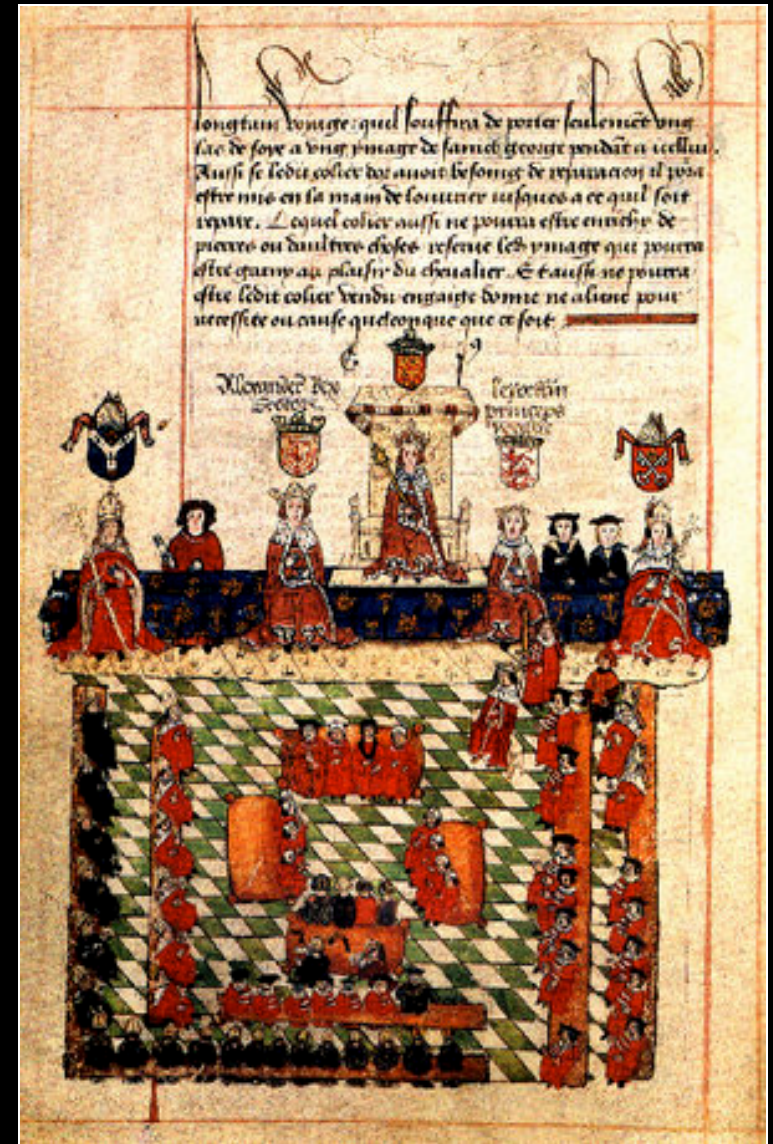 longtain voyage: quil souffira de porter seulemēt vng
las de soye a vng ymage de sainct george pendāt a icelluy.
Aussi se ledit colier dor auoit besoing de reparacion il pora
estre mis en la main de louurier iusques a ce quil soit
repare. Lequel colier aussi ne pourra estre enrichy de
pierres ou daultres choses reserue led ymage qui pourra
estre garny au plaisir du cheualier. Et aussi ne pourra
estre ledit colier vendu engaige donne ne aliene pour
necessite ou cause quelconque que ce soit
Alexander Rex
princeps